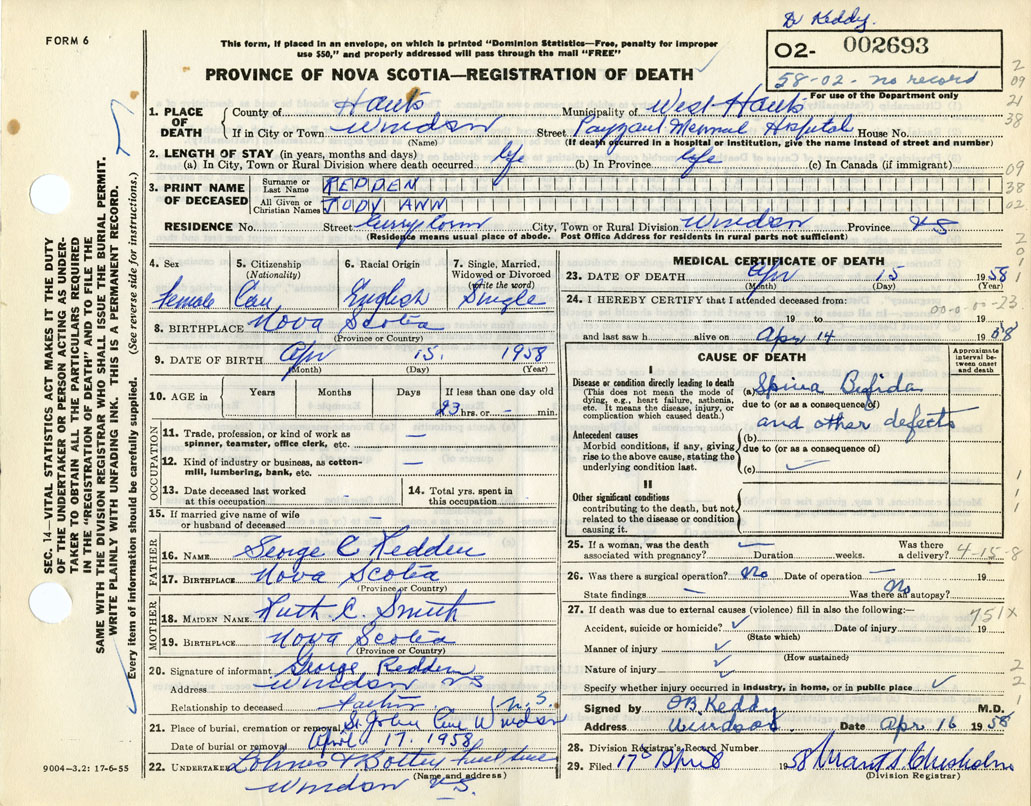 Dr Keddy.
FORM 6
This form, if placed in an envelope, on which is printed "Dominion Statistics—Free, penalty for improper
use $50," and properly addressed will pass through the mail "FREE"
PROVINCE OF NOVA SCOTIA—REGISTRATION OF DEATH
02- 002693
58-02- no record
For use of the Department only
1. PLACE OF DEATH
County of Hants Municipality of West Hants
If in City or Town Windsor Street Payzant Memorial Hospital House No.
(Name) (If death occurred in a hospital or institution, give the name instead of street and number)
2. LENGTH OF STAY (in years, months and days)
(a) In City, Town or Rural Division where death occurred life (b) In Province life (c) In Canada (if immigrant)
3. PRINT NAME OF DECEASED
Surname or Last Name REDDEN
All Given or Christian Names JUDY ANN
RESIDENCE No. Street City, Town or Rural Division Windsor Province NS
(Residence means usual place of abode. Post Office Address for residents in rural parts not sufficient)
4. Sex 5. Citizenship (Nationality) 6. Racial Origin 7. Single, Married, Widowed or Divorced (write the word)
Female Can English Single
8. BIRTHPLACE Nova Scotia
(Province or Country)
9. DATE OF BIRTH Apr 15. 1958
(Month) (Day) (Year)
10. AGE in Years Months Days If less than one day old
23 hrs. or – min.
OCCUPATION
11. Trade, profession, or kind of work as spinner, teamster, office clerk, etc. —
12. Kind of industry or business, as cotton-mill, lumbering, bank, etc. —
13. Date deceased last worked at this occupation
14. Total yrs. spent in this occupation
15. If married give name of wife or husband of deceased –
FATHER
16. NAME George C Redden
17. BIRTHPLACE Nova Scotia
(Province or Country)
MOTHER
18. MAIDEN NAME Ruth C. Smith
19. BIRTHPLACE Nova Scotia
(Province or Country)
20. Signature of informant George Redden
Address Windsor NS
Relationship to deceased Father N.S.
21. Place of burial, cremation or removal St. John Windsor
Date of burial or removal April 17. 1958
22. UNDERTAKER
(Name and address)
Windsor N.S.
9004—3.2: 17-6-55
SEC. 14—VITAL STATISTICS ACT MAKES IT THE DUTY
OF THE UNDERTAKER OR PERSON ACTING AS UNDER-
TAKER TO OBTAIN ALL THE PARTICULARS REQUIRED
IN THE "REGISTRATION OF DEATH" AND TO FILE THE
SAME WITH THE DIVISION REGISTRAR WHO SHALL ISSUE THE BURIAL PERMIT.
WRITE PLAINLY WITH UNFADING INK. THIS IS A PERMANENT RECORD.
Every item of information should be carefully supplied. (See reverse side for instructions.)
MEDICAL CERTIFICATE OF DEATH
23. DATE OF DEATH Apr 15 1958
(Month) (Day) (Year)
24. I HEREBY CERTIFY that I attended deceased from:
00-0-00-23
19 to 19
and last saw h alive on Apr 14 1958
CAUSE OF DEATH
Approximate interval between onset and death
I
Disease or condition directly leading to death
(This does not mean the mode of dying, e.g., heart failure, asthenia, etc. It means the disease, injury, or complication which caused death.)
(a) Spina Bifida
due to (or as a consequence of)
and other defects
Antecedent causes
Morbid conditions, if any, giving rise to the above cause, stating the underlying condition last.
(b)
due to (or as a consequence of)
(c)
II
Other significant conditions
contributing to the death, but not related to the disease or condition causing it.
25. If a woman, was the death associated with pregnancy? Duration weeks. Was there a delivery? 4-15-8
26. Was there a surgical operation? No Date of operation – 19
State findings – Was there an autopsy? No
27. If death was due to external causes (violence) fill in also the following:—
751X
Accident, suicide or homicide? Date of injury 19
(State which)
Manner of injury
(How sustained)
Nature of injury
Specify whether injury occurred in industry, in home, or in public place
Signed by OB Keddy M.D.
Address Windsor Date Apr 16 1958
28. Division Registrar's Record Number
29. Filed 17 April 1958 Chisholm
(Division Registrar)
2
09
21
38
09
38
02
2
0
1
1
1
1
1
2
2
1